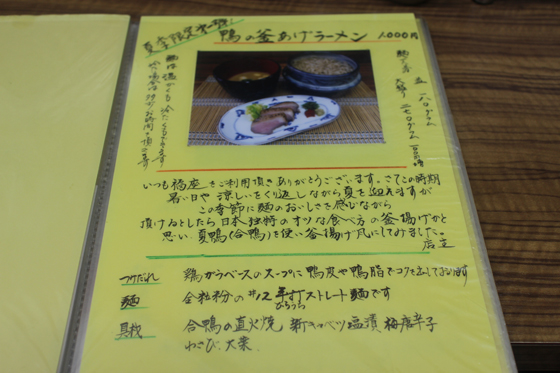 夏季限定
鴨の釜あげラーメン 1,000円
麺は温かくも冷たくも
いつも福座をご利用頂きありがとうございます。さてこの時期
暑い日や涼しいをくり返しながら夏を迎えますが
この季節に麺のおいしさを感じながら
頂けるとしたら日本独特のオツな食べ方の釜揚げかと
思い、夏鴨(合鴨)を使い釜揚げ風にしてみました。
店主
つけだれ 鶏がらベースのスープに鴨皮や鴨脂でコクを出しております
麺 全粒粉の#12 平打ストレート麺です
ひらうち
具材 合鴨の直火焼 新キャベツ塩漬 梅唐辛子
わさび、大葉、